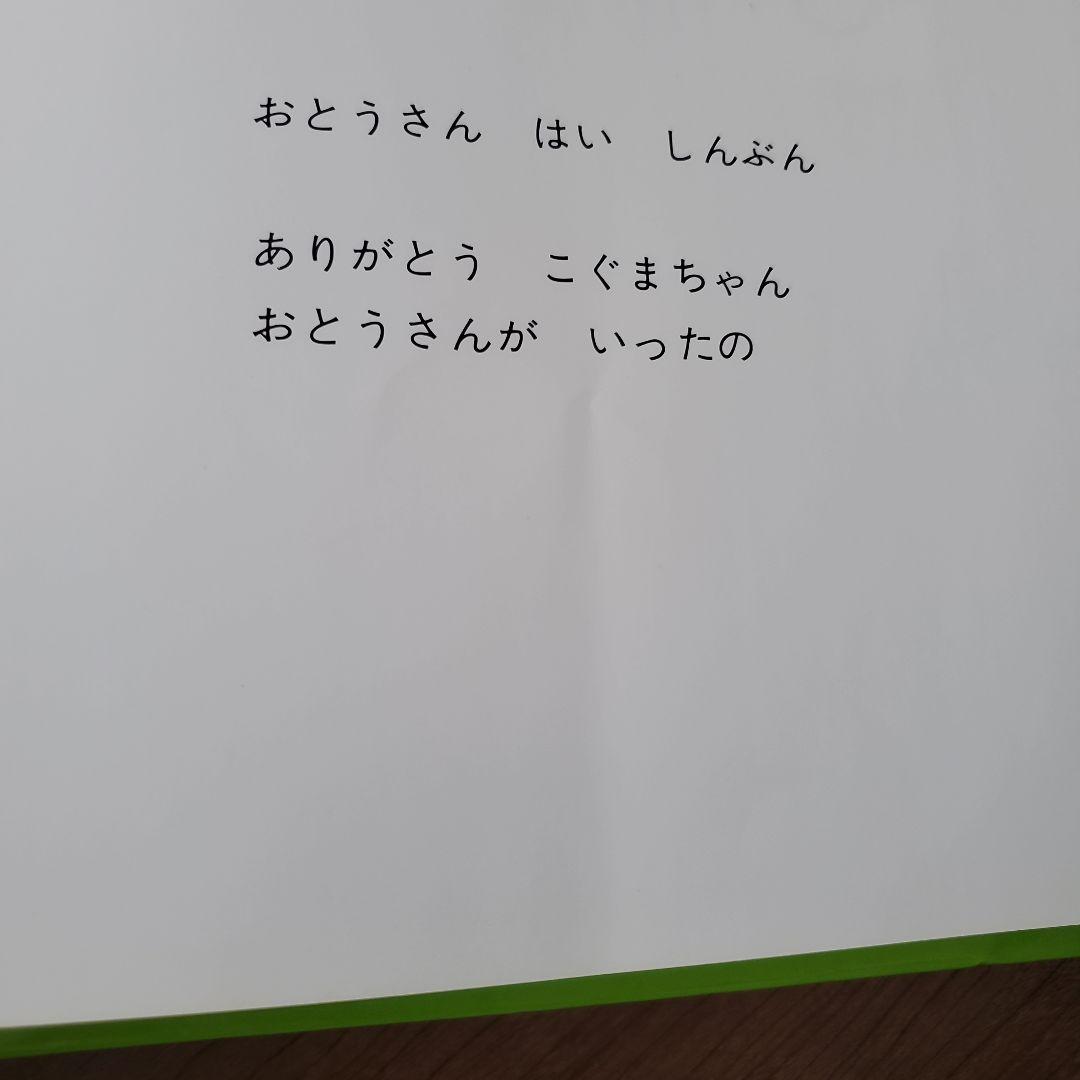 おとうさん　はい　しんぶん
ありがとう　こぐまちゃん
おとうさんが　いったの